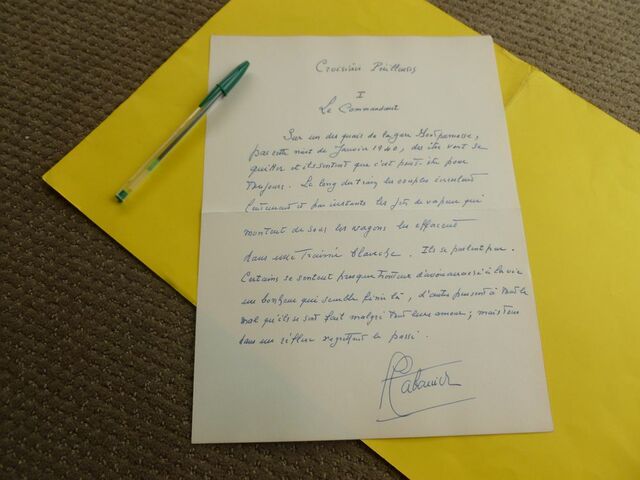 Croisière
I
Le Commandant
Sur un des quais de la gare Montparnasse,
par cette nuit de Janvier 1940, des êtres vont se
quitter et ils sentent que c'est peut-être pour
toujours. Le long du train les couples circulent
lentement et par instants les jets de vapeur qui
montent de sous les wagons les effacent
dans une Trainée blanche. Ils se parlent peu.
Certains se sentent presque honteux d'avoir arraché à la vie
un bonheur qui semble fini là, d'autres pensent à tout le
mal qu'ils se sont fait malgré tout leur amour; mais tous
dans un reflux regrettent le passé.